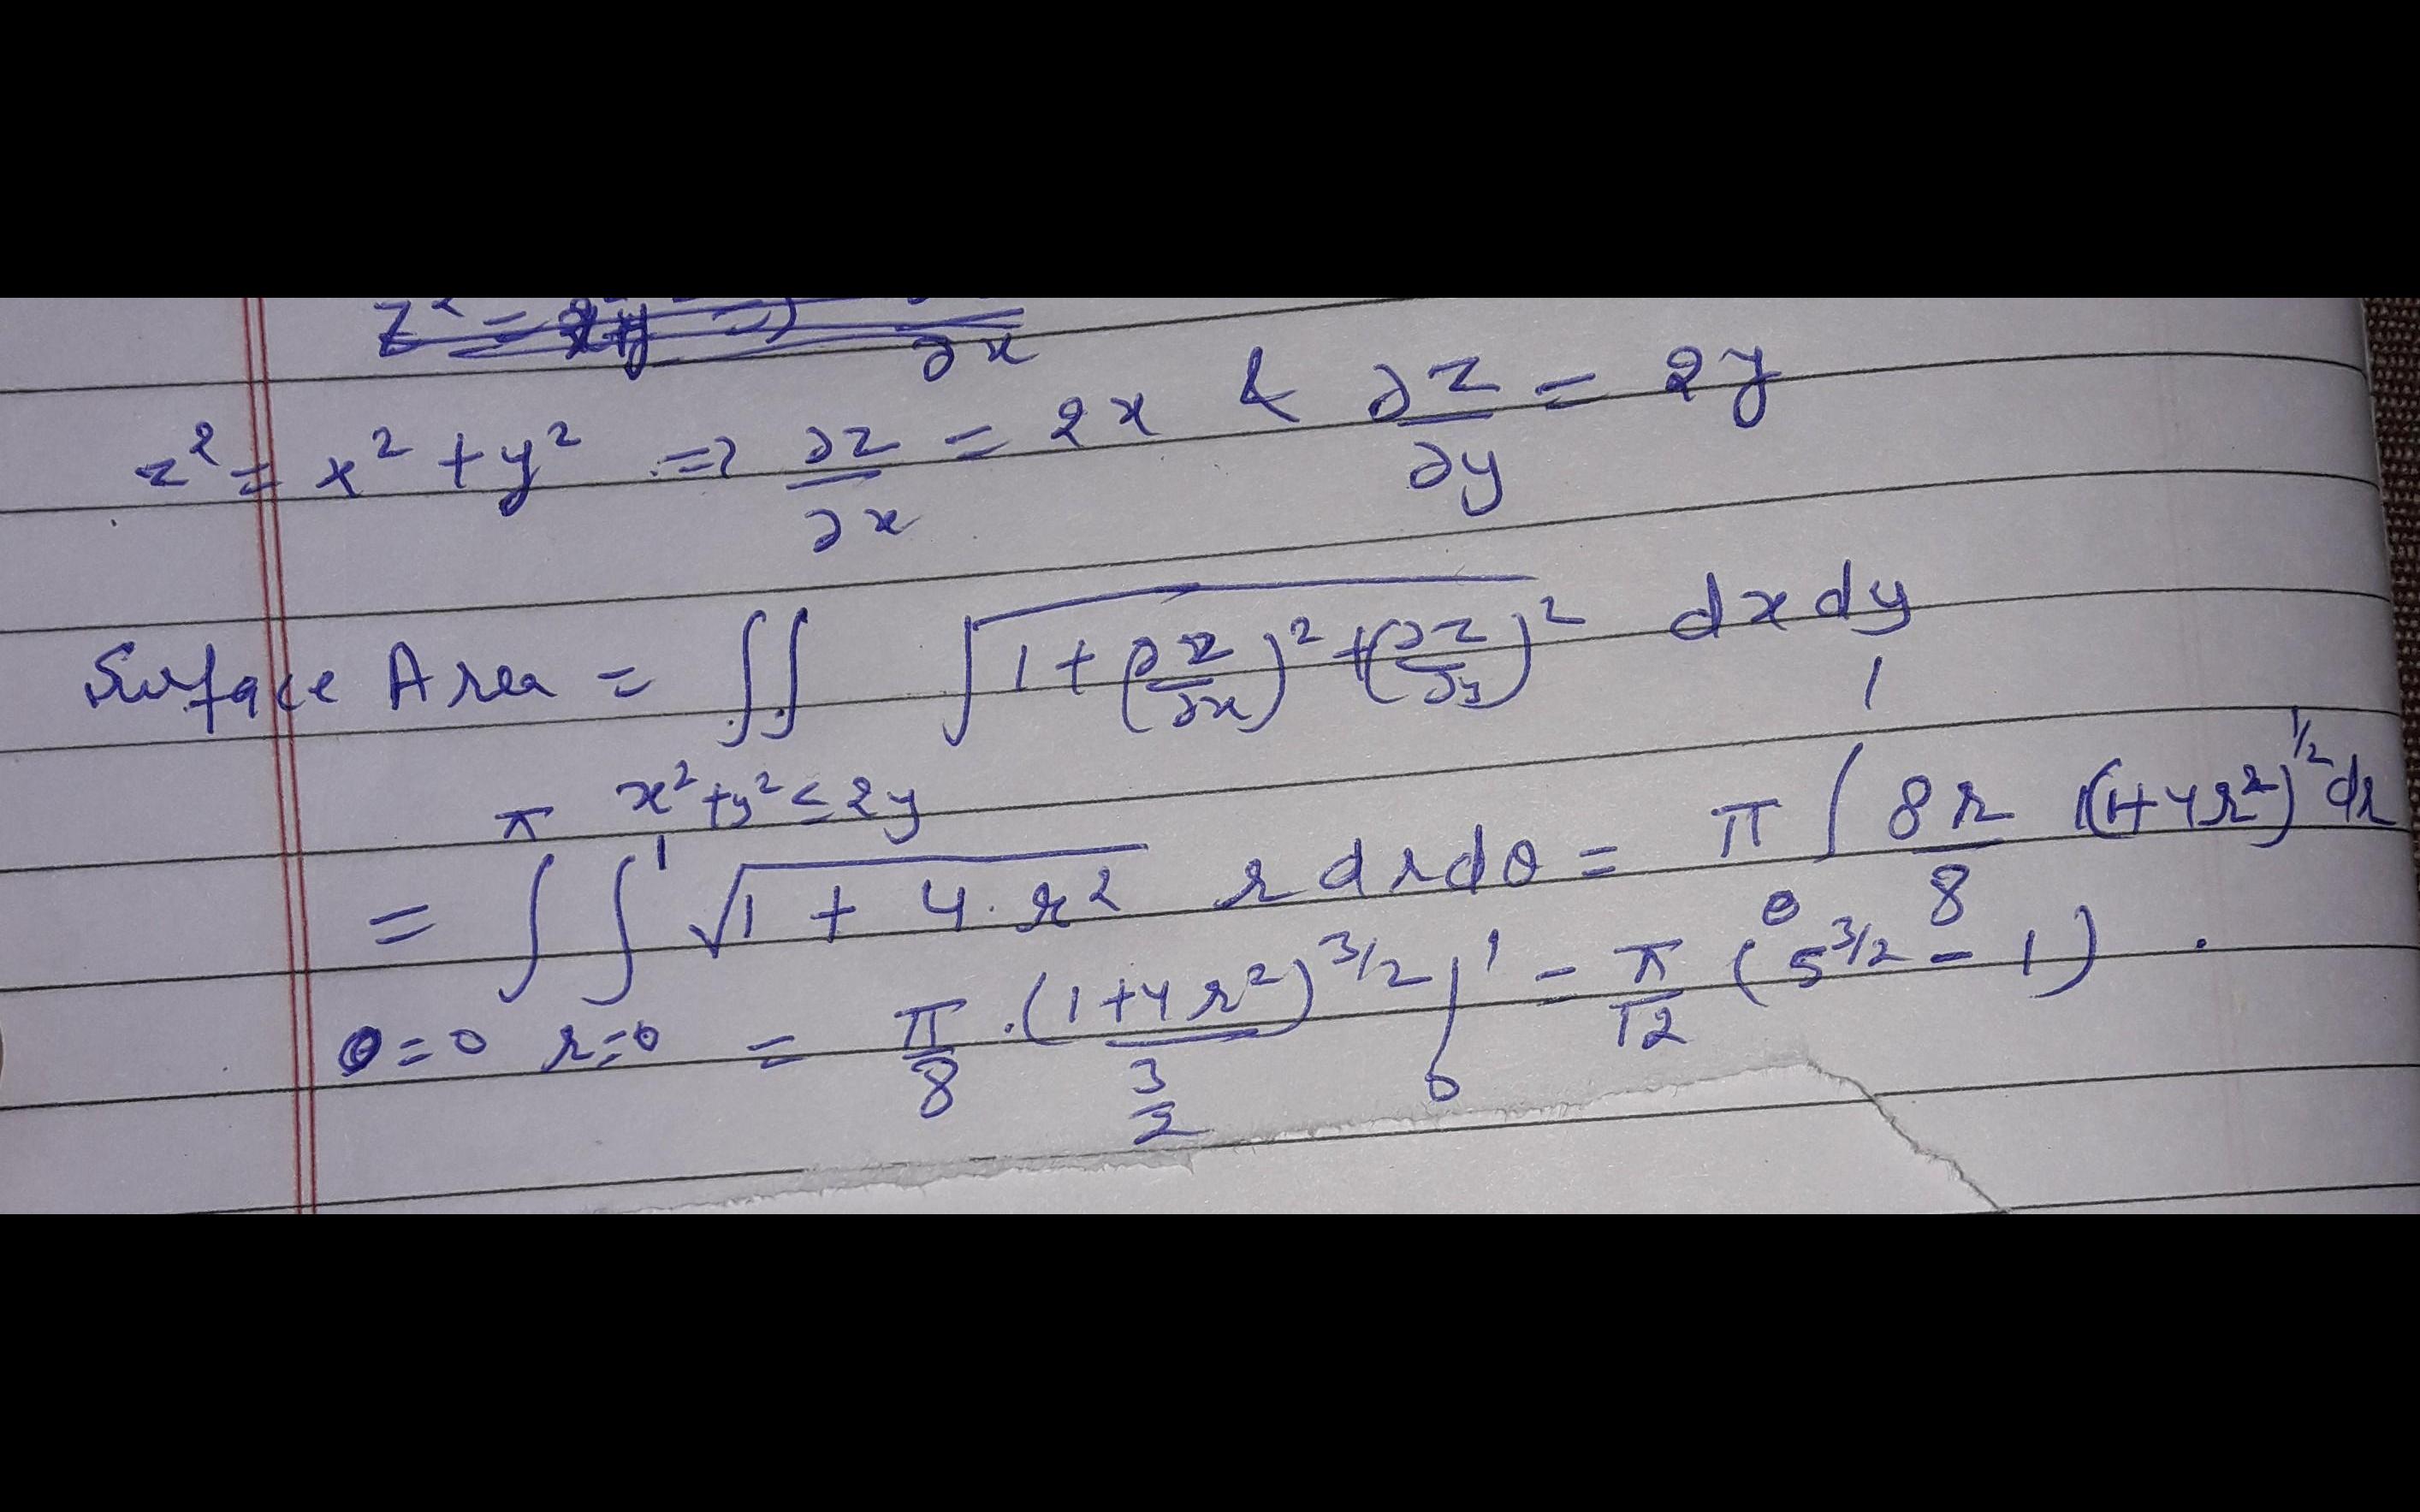 z² = x² + y² => ∂z/∂x = 2x & ∂z/∂y = 2y
Surface Area = ∬ √(1 + (∂z/∂x)² + (∂z/∂y)²) dx dy
x² + y² ≤ 2y
= ∫_{θ=0}^{π} ∫_{r=0}^{1} √(1 + 4·r²) r dr dθ = π ∫_{0}^{1} 8r/8 (1+4r²)^{1/2} dr
= π/8 · (1+4r²)^{3/2} / (3/2) |_{0}^{1} = π/12 (5^{3/2} − 1).